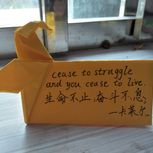 cease to struggle
and you cease to live.
生命不止,奋斗不息,
—卡莱尔